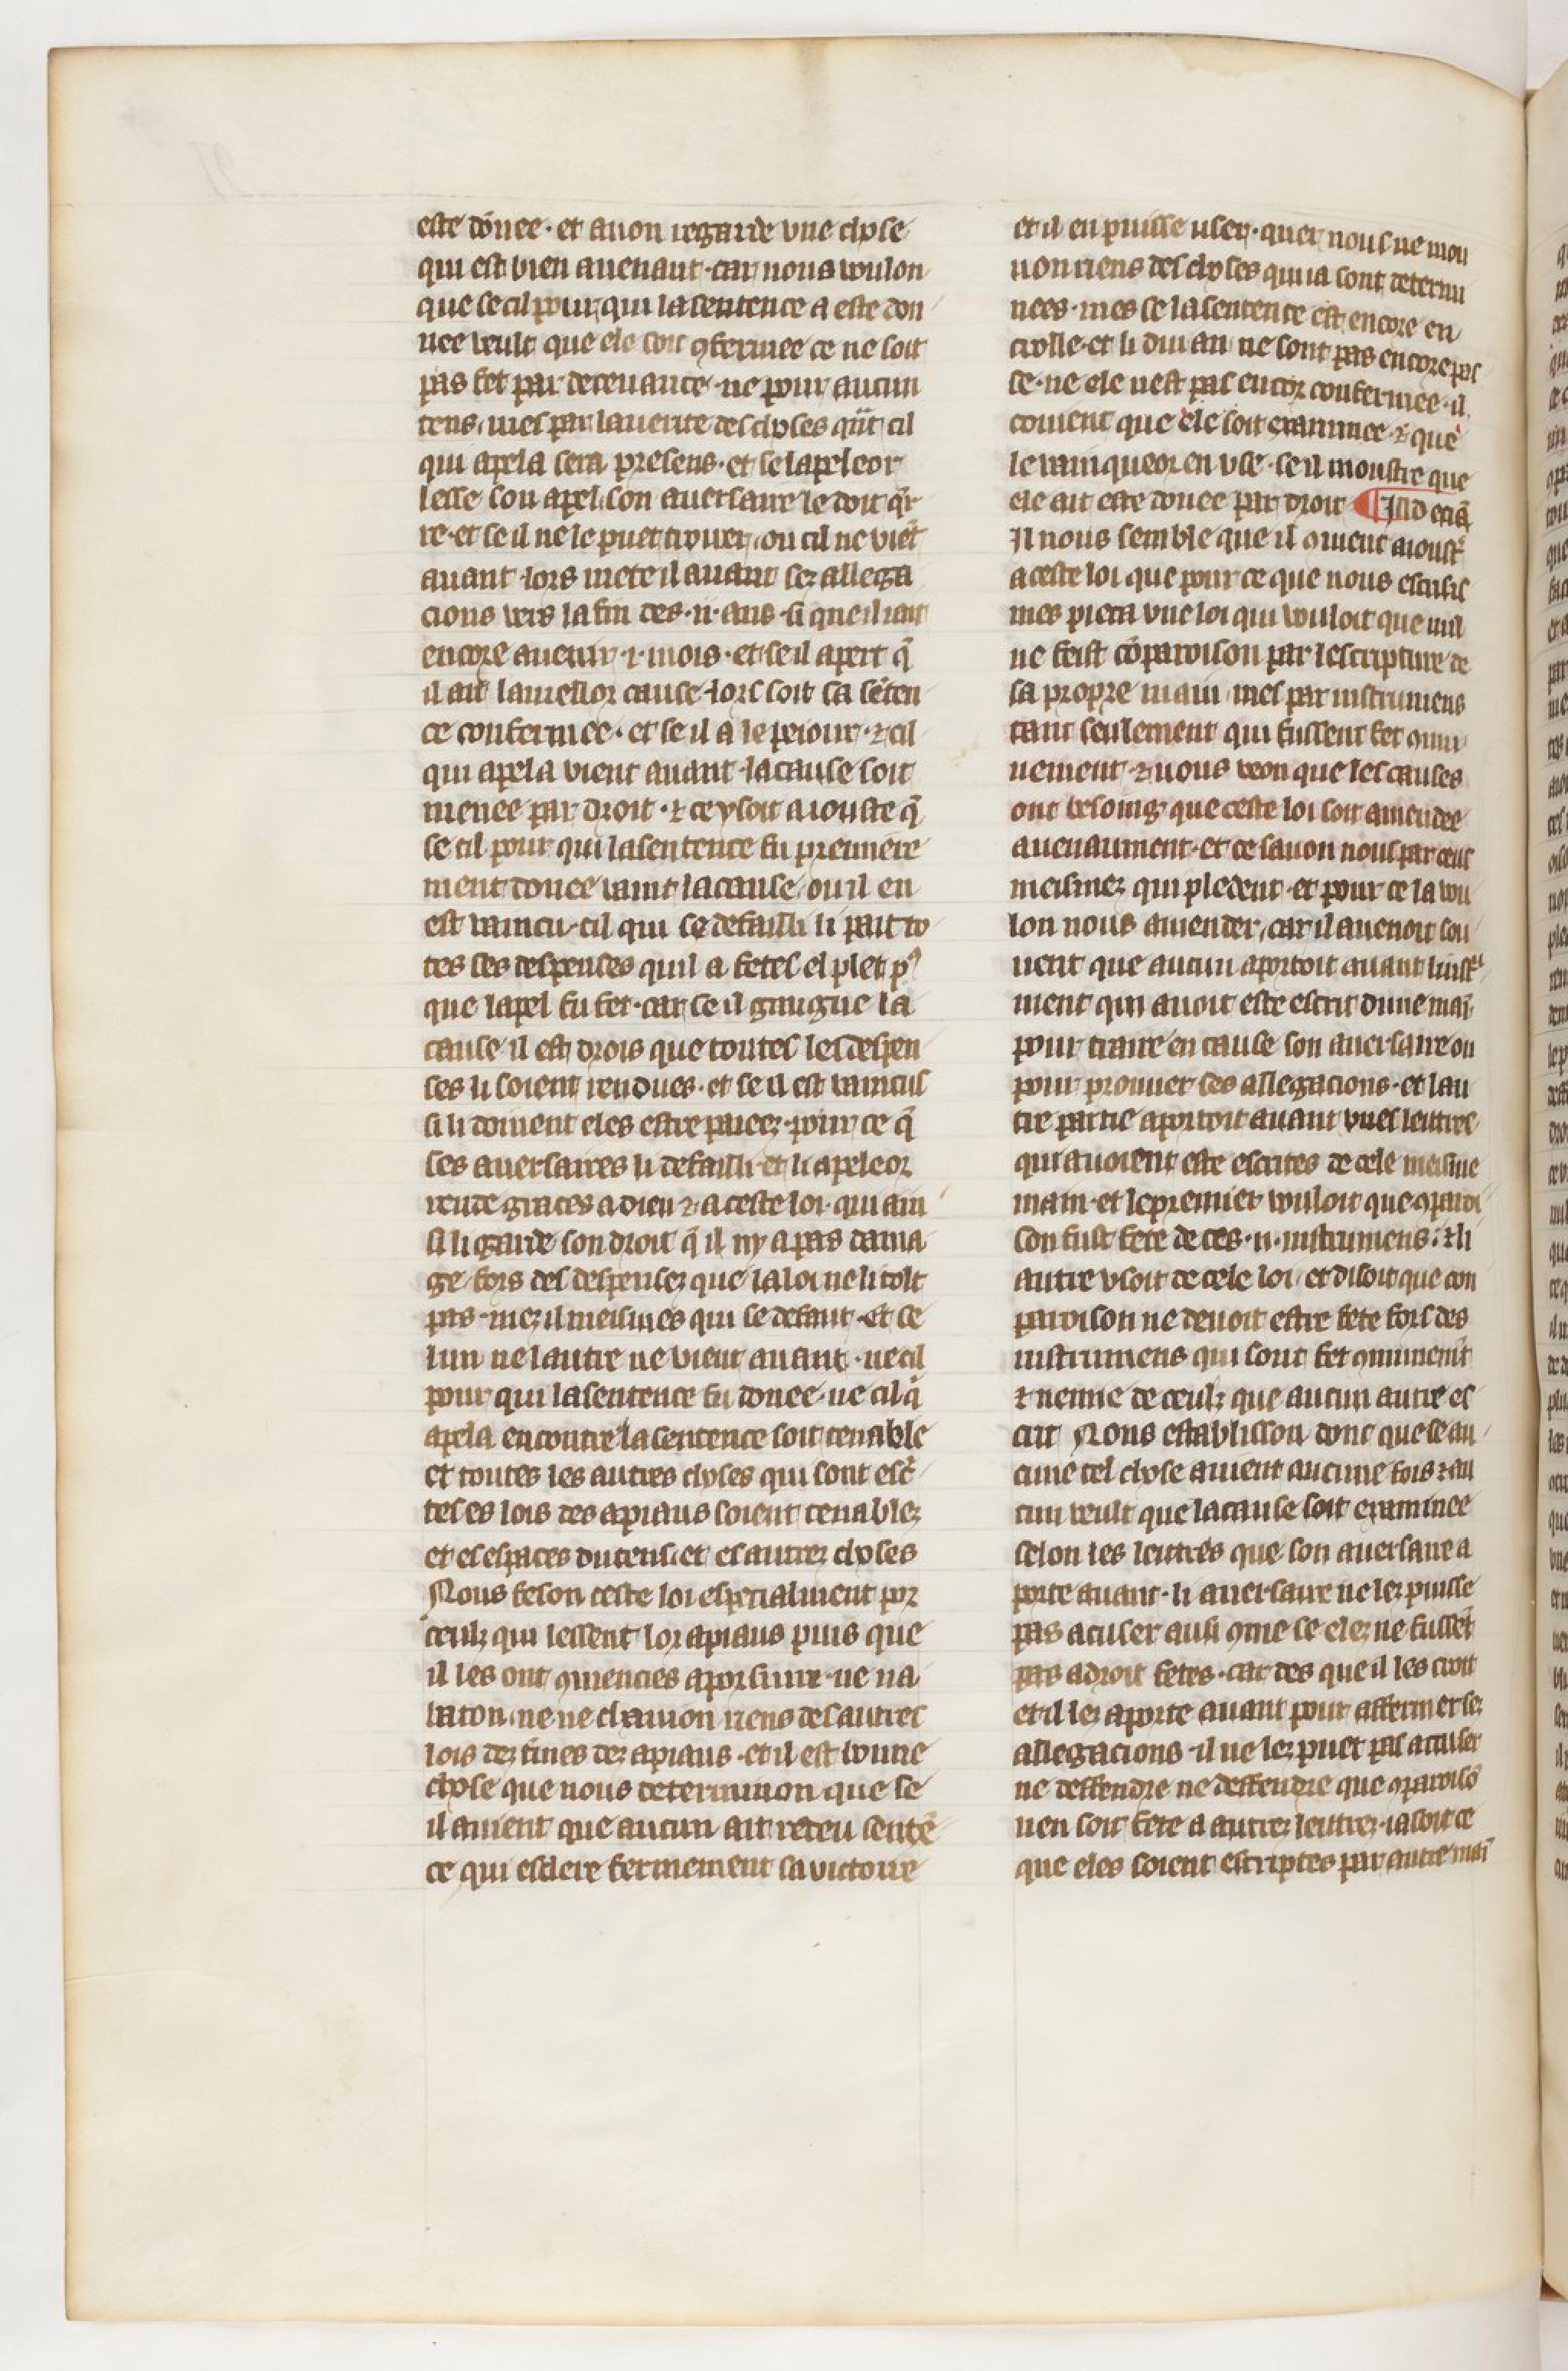 este dõnee · et auon regarde vne chose
qui est bien auenant · car nous voulon
que se cil pour qui la sentence a este don
nee veult que ele soit ꝯfermee ce ne soit
pas fet par deceuance · ne pour aucun
tens · mes par la uerite des choses qñt cil
qui apela sera presens · et se lapeleor
lesse son apel · son auersaire le doit q̃r
re · et se il ne le puet trouuer · ou cil ne viẽt
auant · lors mete il auant sez allega
cions vers la fin des · ii · ans · si que il iait
encore auenir · i · mois · et se il apert q̃
il ait la meillor cause · lors soit sa sẽten
ce confermee · et se il a le peiour · ⁊ cil
qui apela vient auant · la cause soit
menee par droit · ⁊ ce y soit aiouste q̃
se cil pour qui la sentence fu premiere
ment donee vaint la cause · ou il en
est vaincu · cil qui se defailli li pait to
tes ses despenses quil a fetes el plet pꝰ
que lapel fu fet · car se il gaaigne la
cause il est drois que toutes les despen
ses li soient rendues · et se il est vaincus
si li doiuent eles estre paieez · pour ce q̃
ses auersaires li defailli · et li apeleor
rende graces a dieu ⁊ a ceste loi · qui ain
si li garde son droit q̃ il ny a pas dama
ge fors des despensez que la loi ne li tolt
pas · mez il meismes qui se defaut · Et se
lun ne lautre ne vient auant · ne cil
pour qui la sentence fu donee · ne cil q̃
apela encontre la sentence soit tenable
et toutes les autres choses qui sont esc̃
tes es lois des apiaus soient tenablez
et es espaces du tens · et es autrez choses
Nous feson ceste loi especialment por
ceulz qui lessent lor apiaus puis que
il les ont ꝯmencies a porsiure · ne na
baton · ne ne chanion riens des autres
lois dez fines dez apiaus · et il est bonne
chose que nous determinon que se
il auient que aucun ait receu sentẽ
ce qui esclere fermement sa victoire
et il en puisse user · quer nous ne mou
uon riens des choses qui ia sont determi
nees · mes se la sentence est encore en
crolle · et li dui an ne sont pas encore pas
se · ne ele nest pas encor confermee · il
couient que ele soit examinee · ⁊ que
le vainqueor en vse · se il moustre que
ele ait este donee par droit ¶ Illud eciã
Il nous semble que il ꝯuient aioust̃
a ceste loi que pour ce que nous escrisis
mes pieca vne loi qui vouloit que nul
ne feist cõparoison par lescripture de
sa propre main · mes par instrumens
tant seulement qui fussent fet ꝯmu
nement · ⁊ nous veon que les causes
ont besoing que ceste loi soit amendee
auenaument · et ce sauon nous par ceus
meismez qui pledent · et pour ce la vou
lon nous amender · car il auenoit sou
uent que aucun aportoit auant linst̃u
ment qui auoit este escrit dune maĩ
pour traire en cause son auersaire ou
pour prouuer ses allegacions · et lau
tre partie aportoit auant vnes lettres
qui auoient este escrites de cele meisme
main · et le premier vouloit que ꝯparoi
son fust fete de ces · ii · instrumens : ⁊ li
autre vsoit de cele loi · et disoit que con
paroison ne deuoit estre fete fors des
instrumens qui sont fet ꝯmunem̃t
⁊ nenne de ceulz que aucun autre es
crit Nous establisson donc que se au
cune tel chose auient aucune fois ⁊ au
cun veult que la cause soit examinee
selon les lettres que son auersaire a
porte auant · li auersaire ne lez puisse
pas acuser ausi ꝯme se elez ne fussẽt
pas a droit fetes · car des que il les croit
et il lez aporte auant pour affermer sez
allegacions · il ne lez puet pas acuser
ne deffendre ne deffendre que ꝯparoisõ
nen soit fete a autrez lettrez · ia soit ce
que eles soient escriptes par autre maĩ